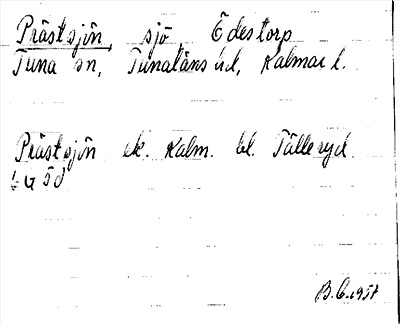 Prästsjön, sjö Edestorp
Tuna sn, Tunaläns hd, Kalmar l.
Prästsjön ek. Kalm. bl. Tälleryd
6 G 5 d
B.G. 1957